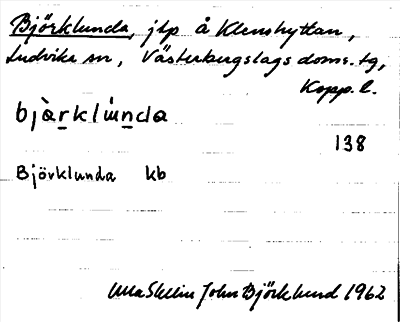 Björklunda, jtp å Klenshyttan,
Ludvika sn, Västerbergslags doms. tg,
Kopp. l.
bjàrklúnda
138
Björklunda kb
John Björklund 1962